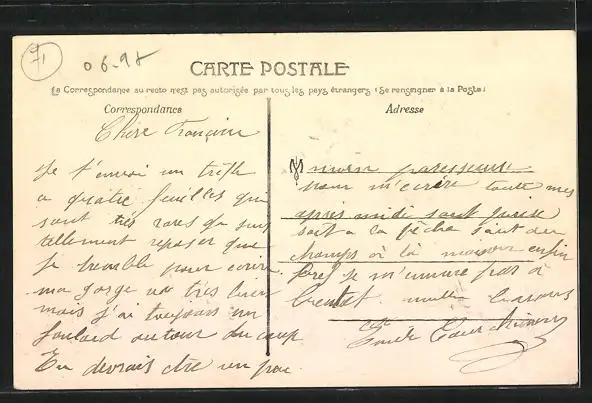 06-98
CARTE POSTALE
La Correspondance au recto n'est pas autorisée par tous les pays étrangers (Se renseigner à la Poste)
Correspondance
Adresse
Chère
Je t'envoi un trèfle
a quatre feuilles qui
sont très rares
tellement reposer que
Je tremble pour ecrire
ma gorge va très bien
mais j'ai toujours un
foulard autour du coup
En devrais etre un peu
moin paresseuse
pour m'ecrire toute mes
après midi sont prises
soit a la pêche soit au
champs o là moisson enfin
bref je m'ennuie pas a
bientot mille baisers